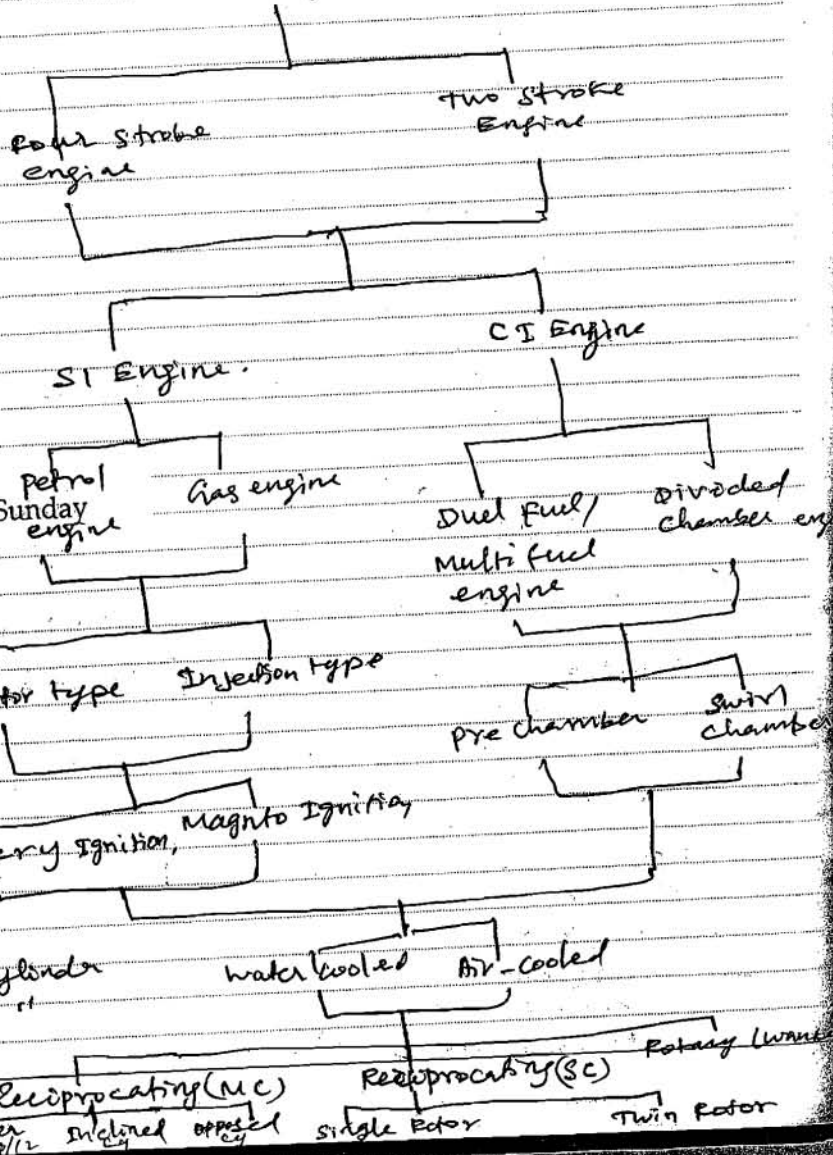 Two Stroke
Engine
Four Stroke
engine
CI Engine
SI Engine.
Petrol
Sunday
engine
Gas engine
Duel Fuel/
Multi fuel
engine
Divided
Chamber eng
tor type
Injection type
Pre chamber
Swirl
Chamber
ery Ignition,
Magnto Ignition
ylinder
Water cooled
Air-cooled
Rotary (Wank
Reciprocating (MC)
Reciprocating (SC)
Inclined
cy
opposed
cy
Single Rotor
Twin Rotor